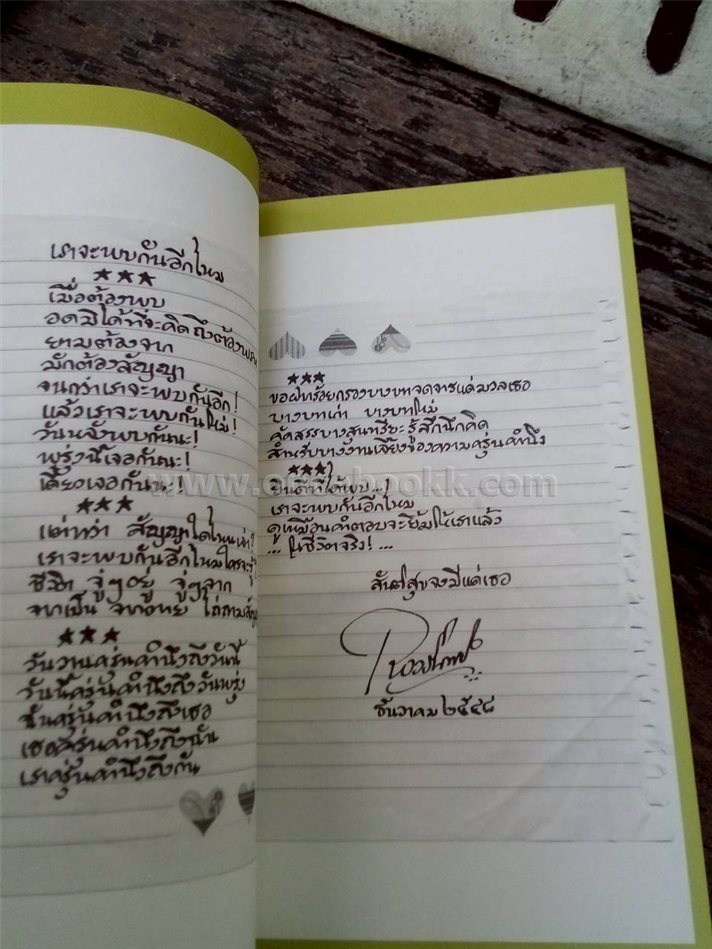 เราจะพบกันอีกไหม
★★★
เมื่อต้องพบ
อดมิได้ที่จะคิดถึงต้องพราก
ยามต้องจาก
มักต้องสัญญา
จนกว่าเราจะพบกันอีก!
แล้วเราจะพบกันใหม่!
วันหลังพบกันนะ!
พรุ่งนี้เจอกันนะ!
เดี๋ยวเจอกันนะ!
★★★
แต่ทว่า สัญญาใดไหนเล่า?
เราจะพบกันอีกไหมใครจะรู้?
ชีวิต จู่ๆอยู่ จู่ๆจาก
จากเป็น จากตาย ไถ่ถาม
★★★
วันวานครุ่นคำนึงถึงวันนี้
วันนี้ครุ่นคำนึงถึงวันพรุ่ง
ฉันครุ่นคำนึงถึงเธอ
เธอครุ่นคำนึงถึงฉัน
เราครุ่นคำนึงถึงกัน
★★★
ขอฝากร้อยกรองบางบทจดจารแด่มวลเธอ
บางบทเก่า บางบทใหม่
คัดสรรบางสุนทรียะรู้สึกนึกคิด
สำหรับบางงานเจียงของความครุ่นคำนึง
★★★
ยินดีที่ได้พบ..!
เราจะพบกันอีกไหม
ดูเหมือนคำตอบจะยิ้มให้เราแล้ว
... ในชีวิตจริง! ...
สันติสุขจงมีแด่เธอ
ธันวาคม ๒๕๔๘